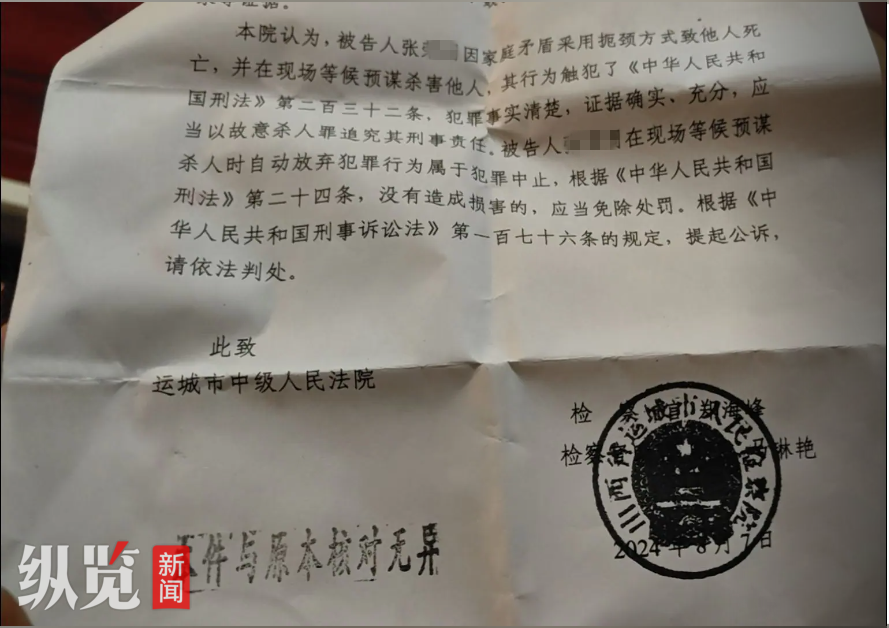 本院认为，被告人张 因家庭矛盾采用扼颈方式致他人死
亡，并在现场等候预谋杀害他人，其行为触犯了《中华人民共和
国刑法》第二百三十二条，犯罪事实清楚，证据确实、充分，应
当以故意杀人罪追究其刑事责任。被告人 在现场等候预谋
杀人时自动放弃犯罪行为属于犯罪中止，根据《中华人民共和国
刑法》第二十四条，没有造成损害的，应当免除处罚。根据《中
华人民共和国刑事诉讼法》第一百七十六条的规定，提起公诉，
请依法判处。
此致
运城市中级人民法院
检
检察
琳艳
山西省运城市人民检察院
2024年8月7日
件与原本核对无异
纵览
新闻